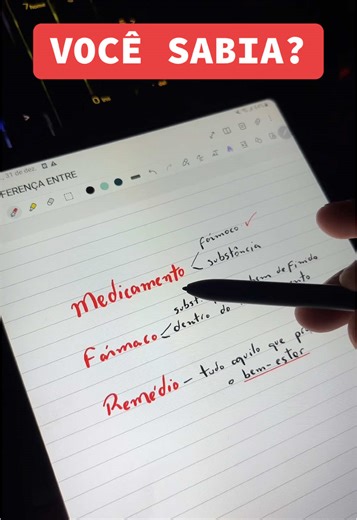 VOCÊ SABIA?
31 de dez.
FERENÇA ENTRE
fármaco ✓
Medicamento < substância
subst bem definida
Fármaco < dentro do
Remédio - tudo aquilo que
o bem-estar